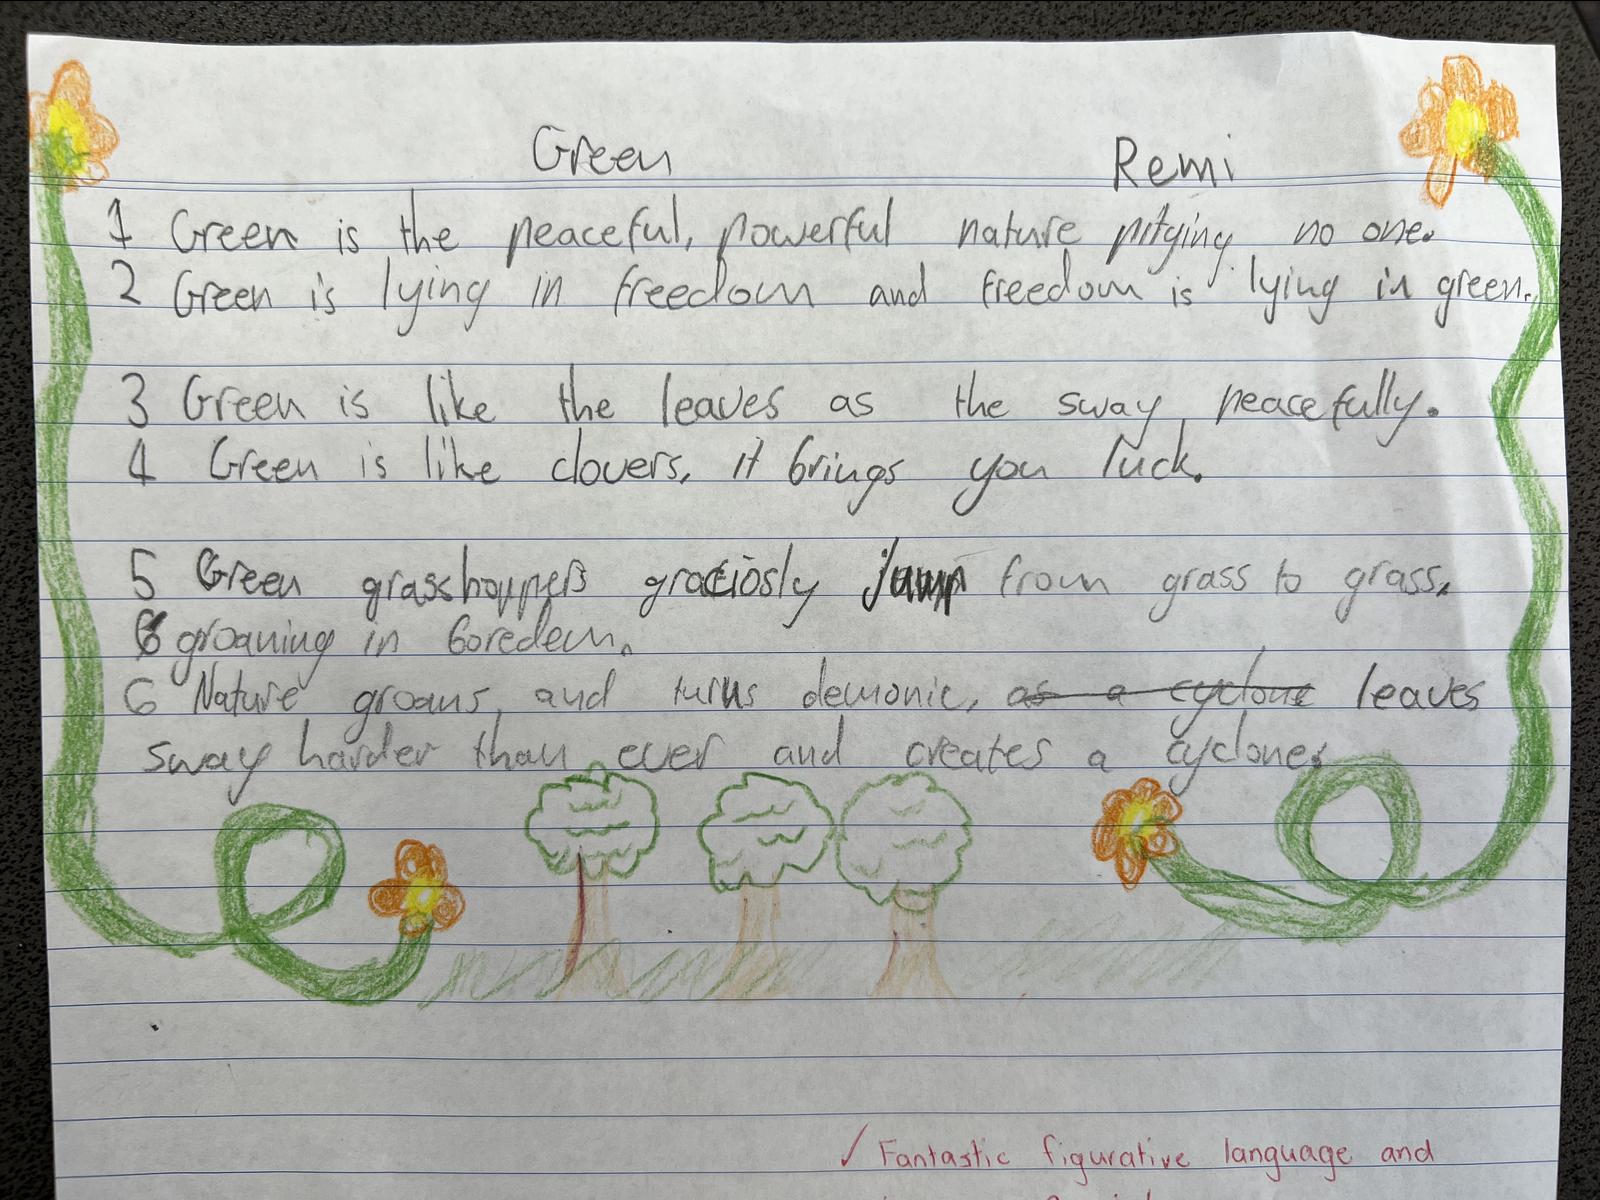 Green Remi
1 Green is the peaceful, powerful nature pitying no one.
2 Green is lying in freedom and freedom is lying in green.
3 Green is like the leaves as the sway peacefully.
4 Green is like clovers, it brings you luck.
5 Green grasshoppers graciosly jump from grass to grass,
6 groaning in boredem.
6 Nature groans, and turns demonic, as a cyclone leaves
sway harder than ever and creates a cyclone.
✓ Fantastic figurative language and